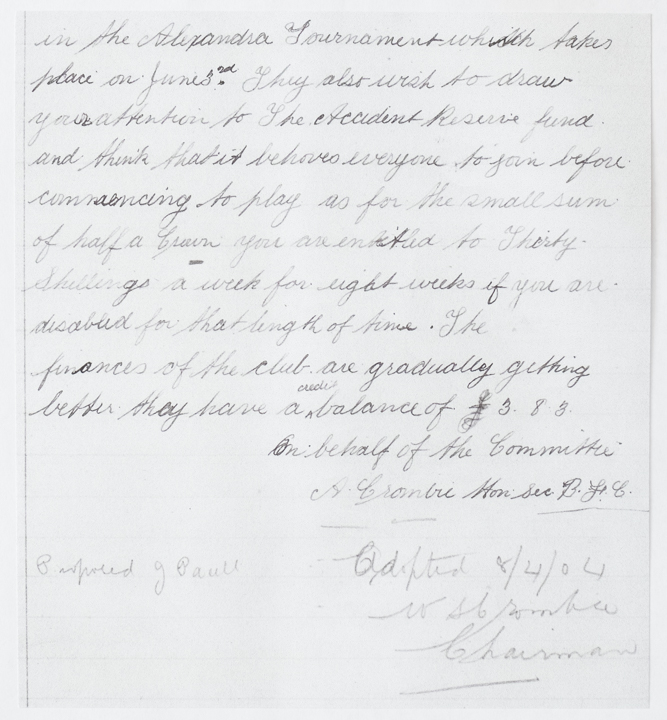 in the Alexandra Tournament which takes
place on June 3rd. They also wish to draw
your attention to The Accident Reserve fund.
and think that it behoves everyone to join before
commencing to play as for the small sum
of half a Crown you are entitled to Thirty
Shillings a week for eight weeks if you are
disabled for that length of time. The
finances of the club are gradually getting
better they have a credit balance of £ 3. 8. 3.
On behalf of the Committee
A. Crombie Hon: Sec B. F. C.
Proposed J Paull
Adopted 8/4/04
W Crombie
Chairman